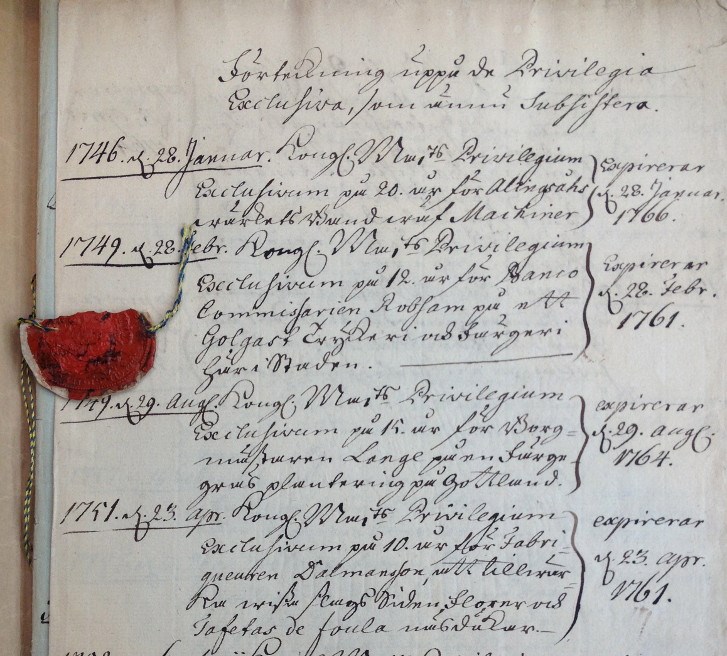 Förteckning uppå de Privilegia
Exclusiva, som ännu Subsistera.
1746. d. 28. Januar. Kongl. Maj:ts Privilegium
Exclusivum på 20. år för Alingsåhs
wärkets Band wäf Machiner
Expirerar
d. 28. Januar.
1766.
1749. d. 28. Febr. Kongl. Maj:ts Privilegium
Exclusivum på 12. år för Banco
Commissarien Robsam på ett
Golgas Tryckeri och Färgeri
här i Staden.
Expirerar
d. 28. Febr.
1761.
1749. d. 29. Augl. Kongl. Maj:ts Privilegium
Exclusivum på 15. år för Borg-
mästaren Lange på en Färge-
gräs plantering på Gottland.
expirerar
d. 29. Augl.
1764.
1751. d. 23. Apr. Kongl. Maj:ts Privilegium
Exclusivum på 10. år för Fabri-
queuren Dalmansson, att tillwär-
ka wissa slags Siden, Florer och
Tafetas de foula näsdukar.
expirerar
d. 23. Apr.
1761.